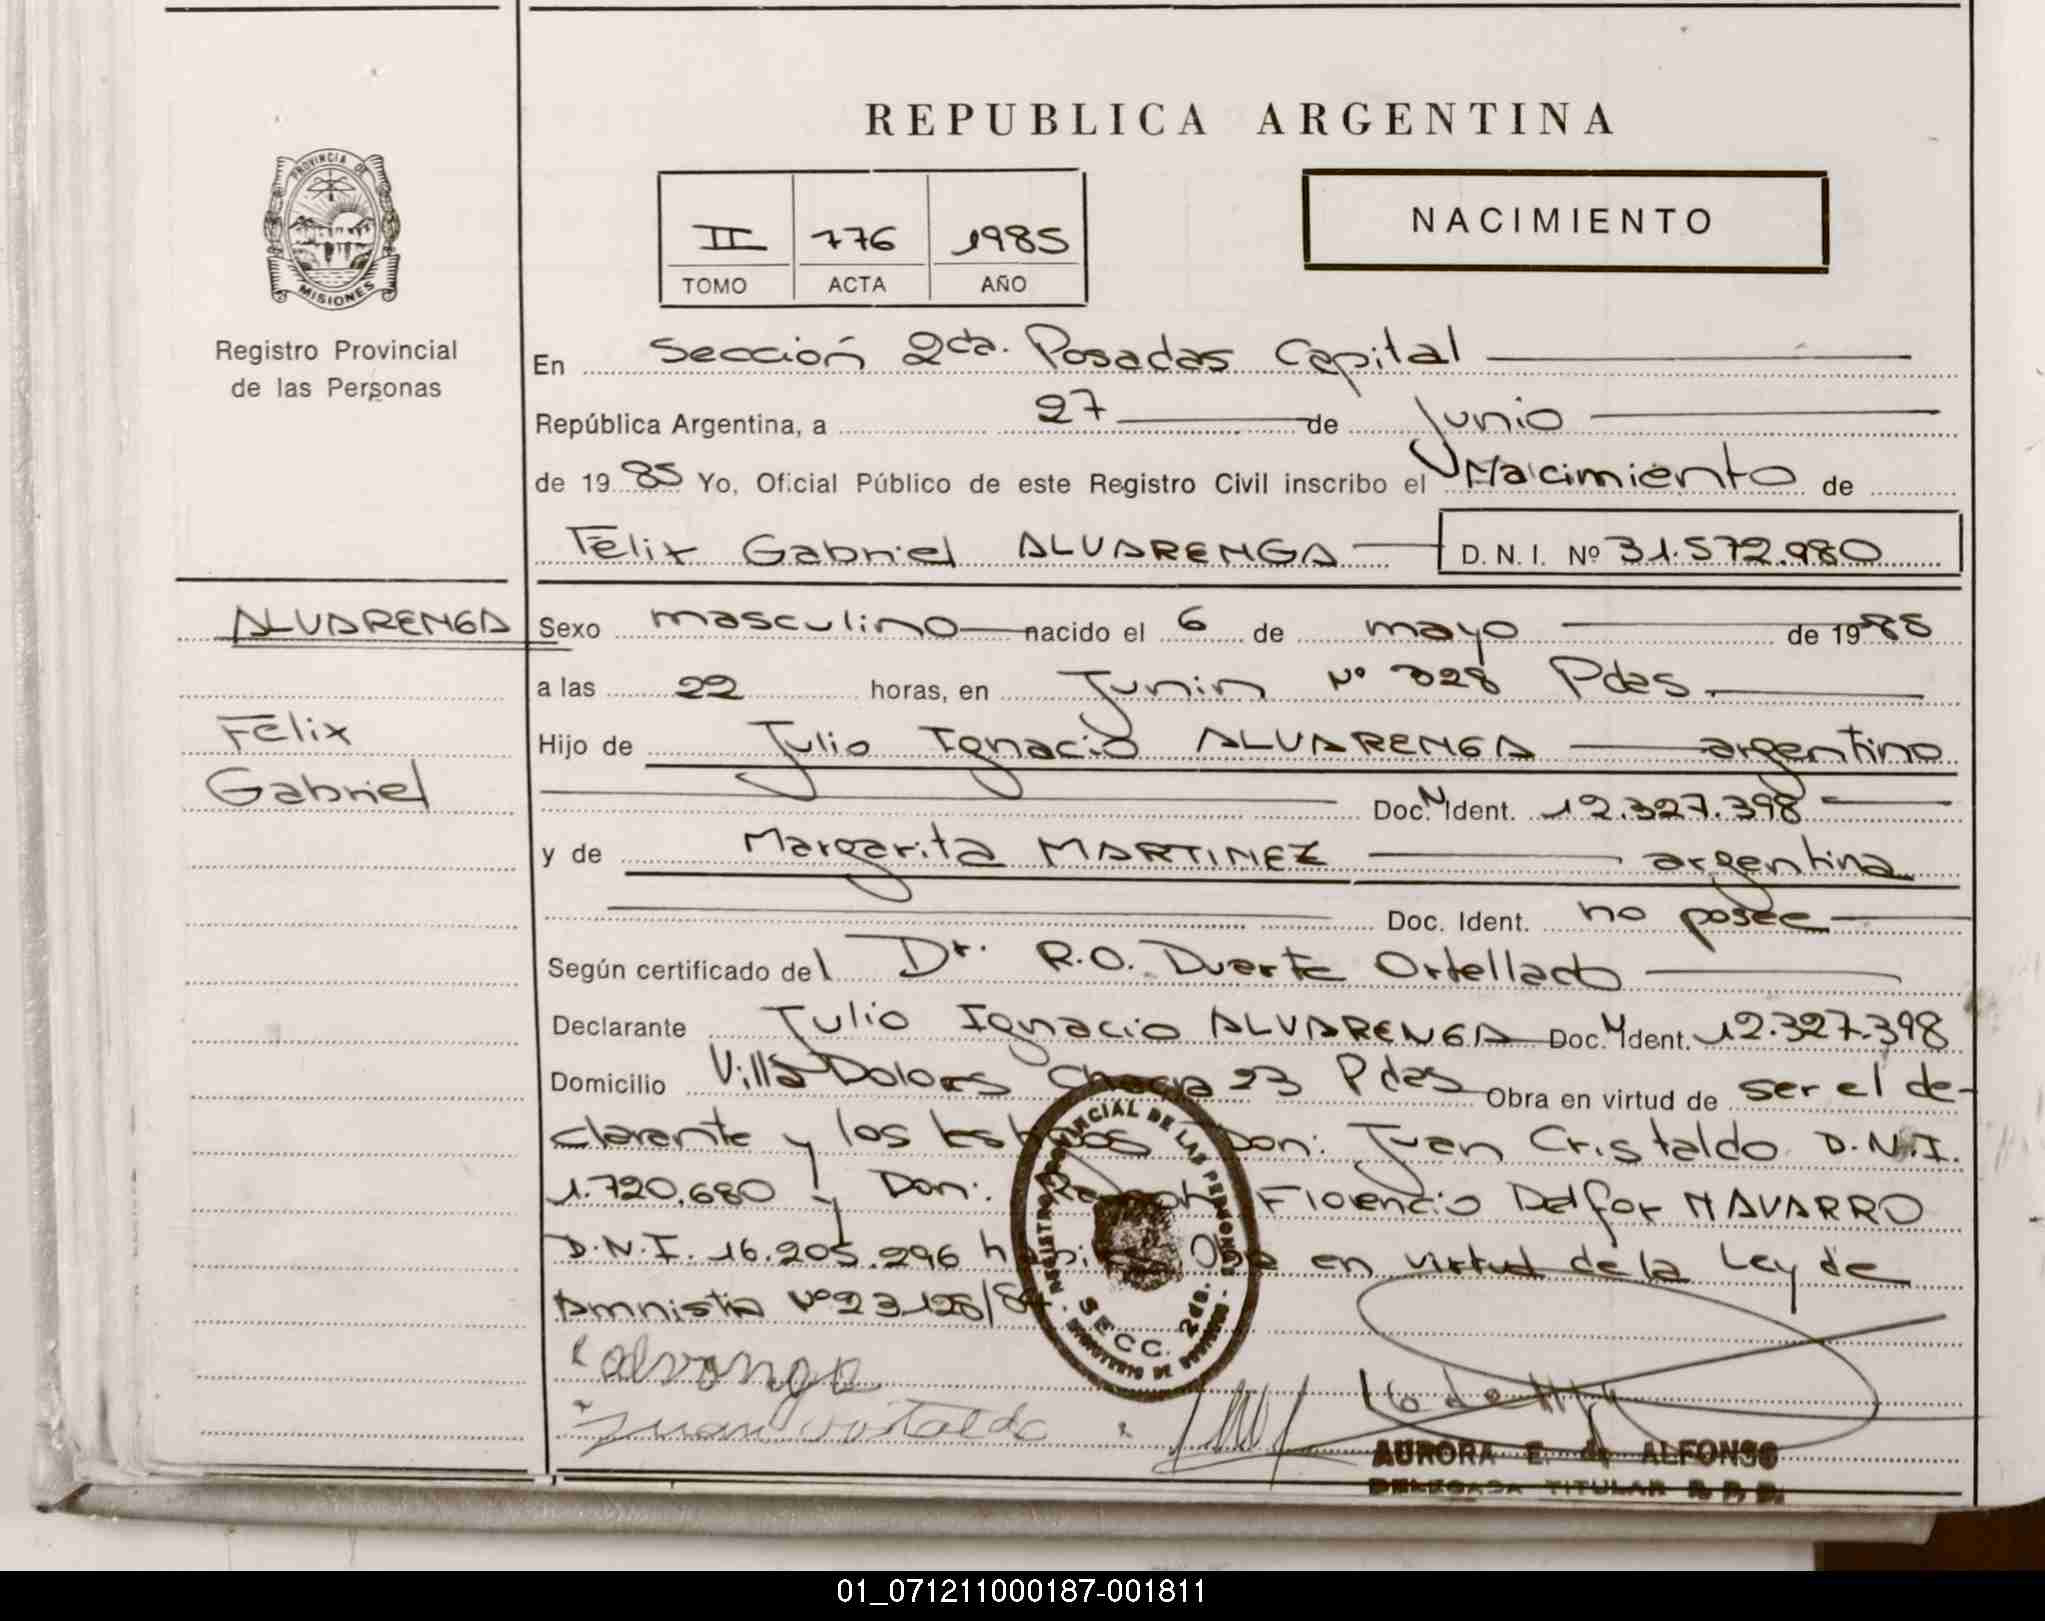 REPUBLICA ARGENTINA
PROVINCIA DE
MISIONES
Registro Provincial
de las Personas
II 776 1985
TOMO ACTA AÑO
NACIMIENTO
En Sección 2da. Posadas Capital
República Argentina, a 27 de Junio
de 1985 Yo, Oficial Público de este Registro Civil inscribo el Nacimiento de
Félix Gabriel ALVARENGA D. N. I. Nº 31.572.980
ALVARENGA
Félix
Gabriel
Sexo masculino nacido el 6 de mayo de 1985
a las 22 horas, en Junin Nº Pdas.
Hijo de Julio Ignacio ALVARENGA argentino
Doc. N Ident. 12.327.398
y de Margarita MARTINEZ argentina
Doc. Ident. no posee
Según certificado del Dr. R.O. Duarte Ortellado
Declarante Julio Ignacio ALVARENGA Doc. N Ident. 12.327.398
Domicilio Villa Dolores Chacra 23 Pdas Obra en virtud de ser el de-
clarante y los testigos Don: Juan Cristaldo D.N.I.
1.720.680 y Don: Ramon Florencio Delfor NAVARRO
D.N.I. 16.205.296 Obra en virtud de la Ley de
Amnistia Nº 23128/84.
REGISTRO PROVINCIAL DE LAS PERSONAS
SECC. 2da.
MINISTERIO DE GOBIERNO
Juan Cristaldo
AURORA E. de ALFONSO
DELEGADA TITULAR R. P. P.
01_071211000187-001811